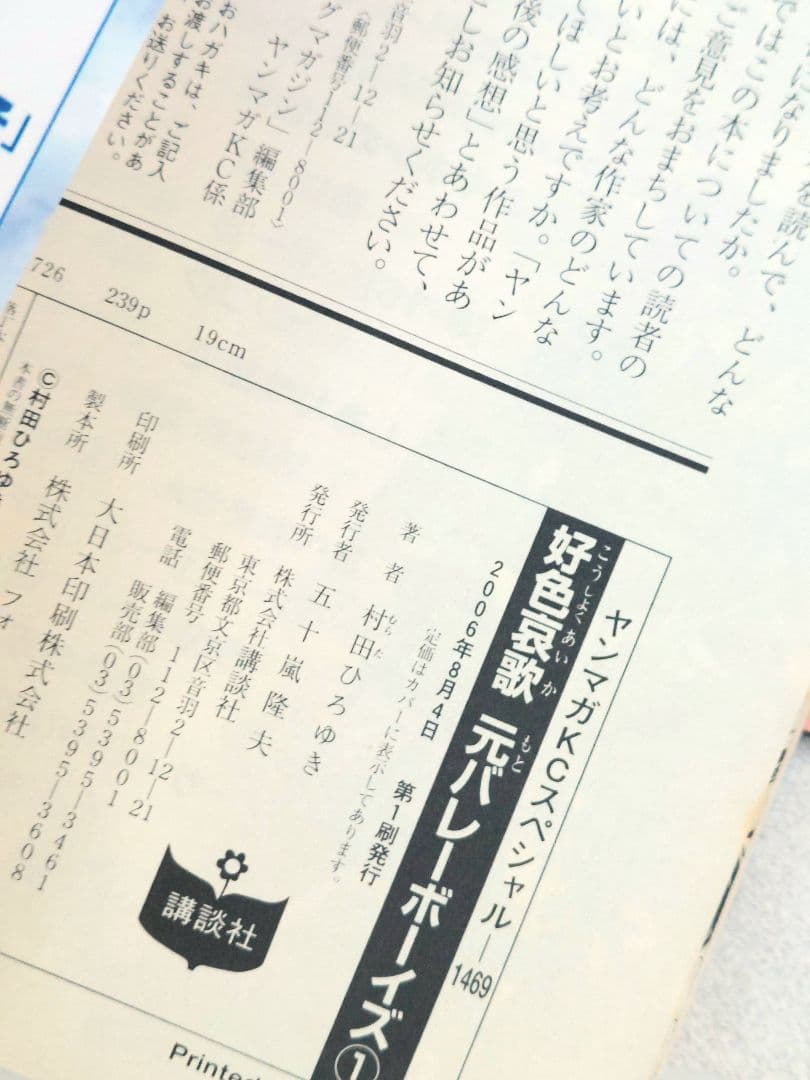 を読んで、どんな
になりましたか。
ではこの本についての読者の
ご意見をおまちしています。
には、どんな作家のどんな
いとお考えですか。「ヤン
てほしいと思う作品があ
後の感想」とあわせて、
しお知らせください。
音羽2―12―21
〈郵便番号112―8001〉
グマガジン」編集部
ヤンマガKC係
おハガキは、ご記入
お渡しすることがあ
お送りください。
726 239p 19cm
ヤンマガKCスペシャル―1469
こうしょくあいか もと
好色哀歌 元バレーボーイズ①
2006年8月4日 第1刷発行
定価はカバーに表示してあります。
むらた
著者 村田ひろゆき
発行者 五十嵐隆夫
発行所 株式会社講談社
東京都文京区音羽2―12―21
郵便番号 112―8001
電話 編集部(03)5395―3461
販売部(03)5395―3608
印刷所 大日本印刷株式会社
製本所 株式会社 フォ
©村田ひろゆ
本書の無断
講談社
Printed